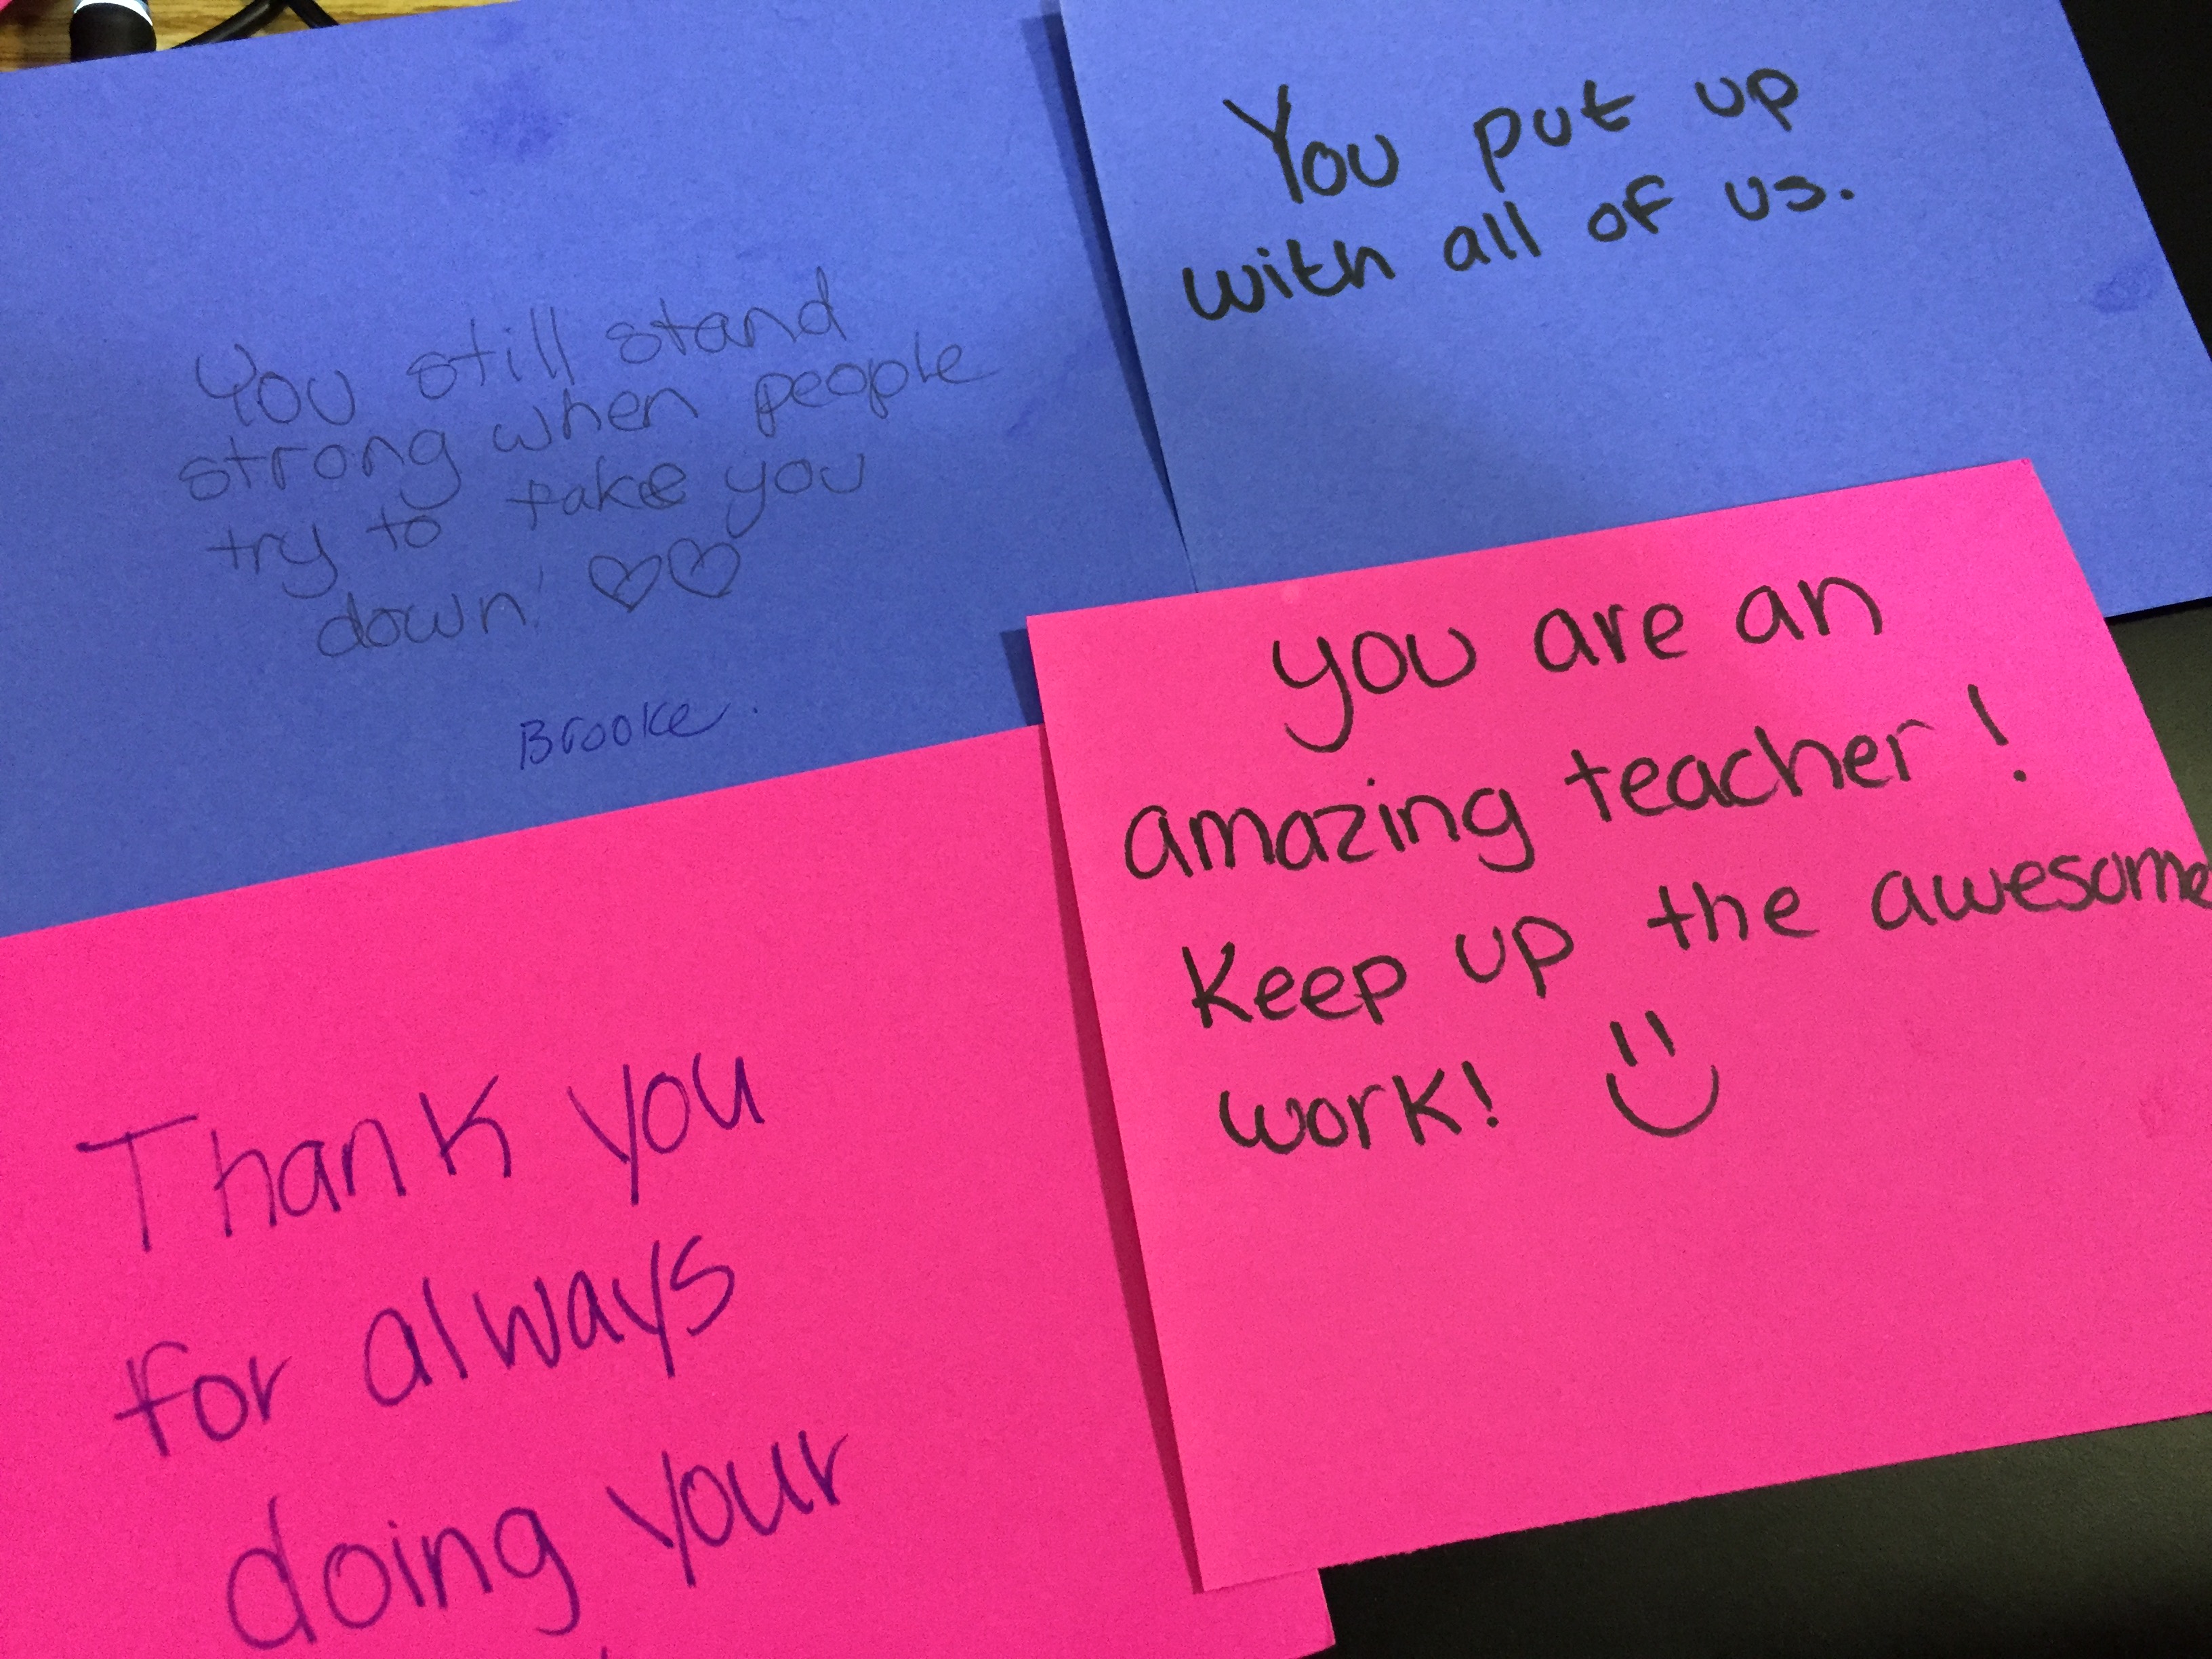 You still stand
strong when people
try to take you
down! ♡♡
Brooke.
You put up
with all of us.
you are an
amazing teacher!
Keep up the awesome
work! :)
Thank you
for always
doing your